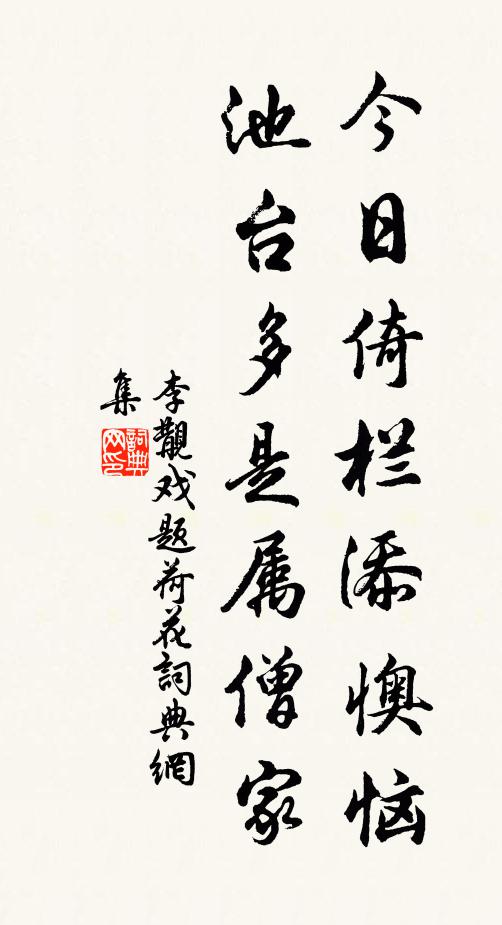 今日倚栏添懊恼
池台多是属僧家
李觏戏题荷花詞典網
集
詞典
网印